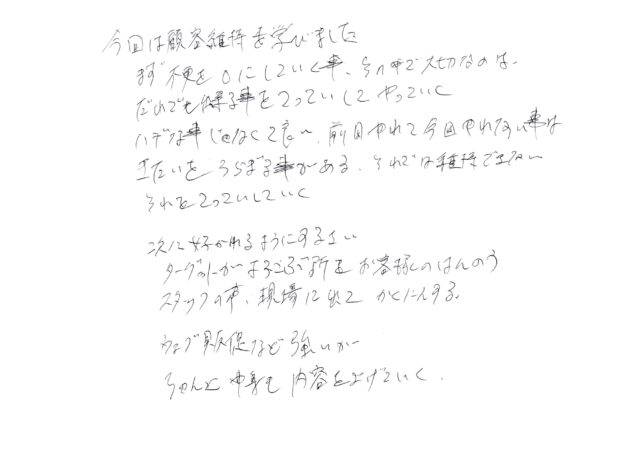 今回は顧客維持を学びました
まず不便を0にしていく事、その中で大切なのは、
だれでも 事をてっていしてやっていく
ハデな事じゃなくて良い、前回やれて今回やれない事は
きたいをうらぎる事がある、それでは維持できない
それをてっていしていく
次に好かれるようにする
ターゲットがよろこぶ所を お客様のはんのう
スタッフの事、現場に出て かくにんする。
ウェブ販促など強いが
ちゃんと中身も内容を上げていく.